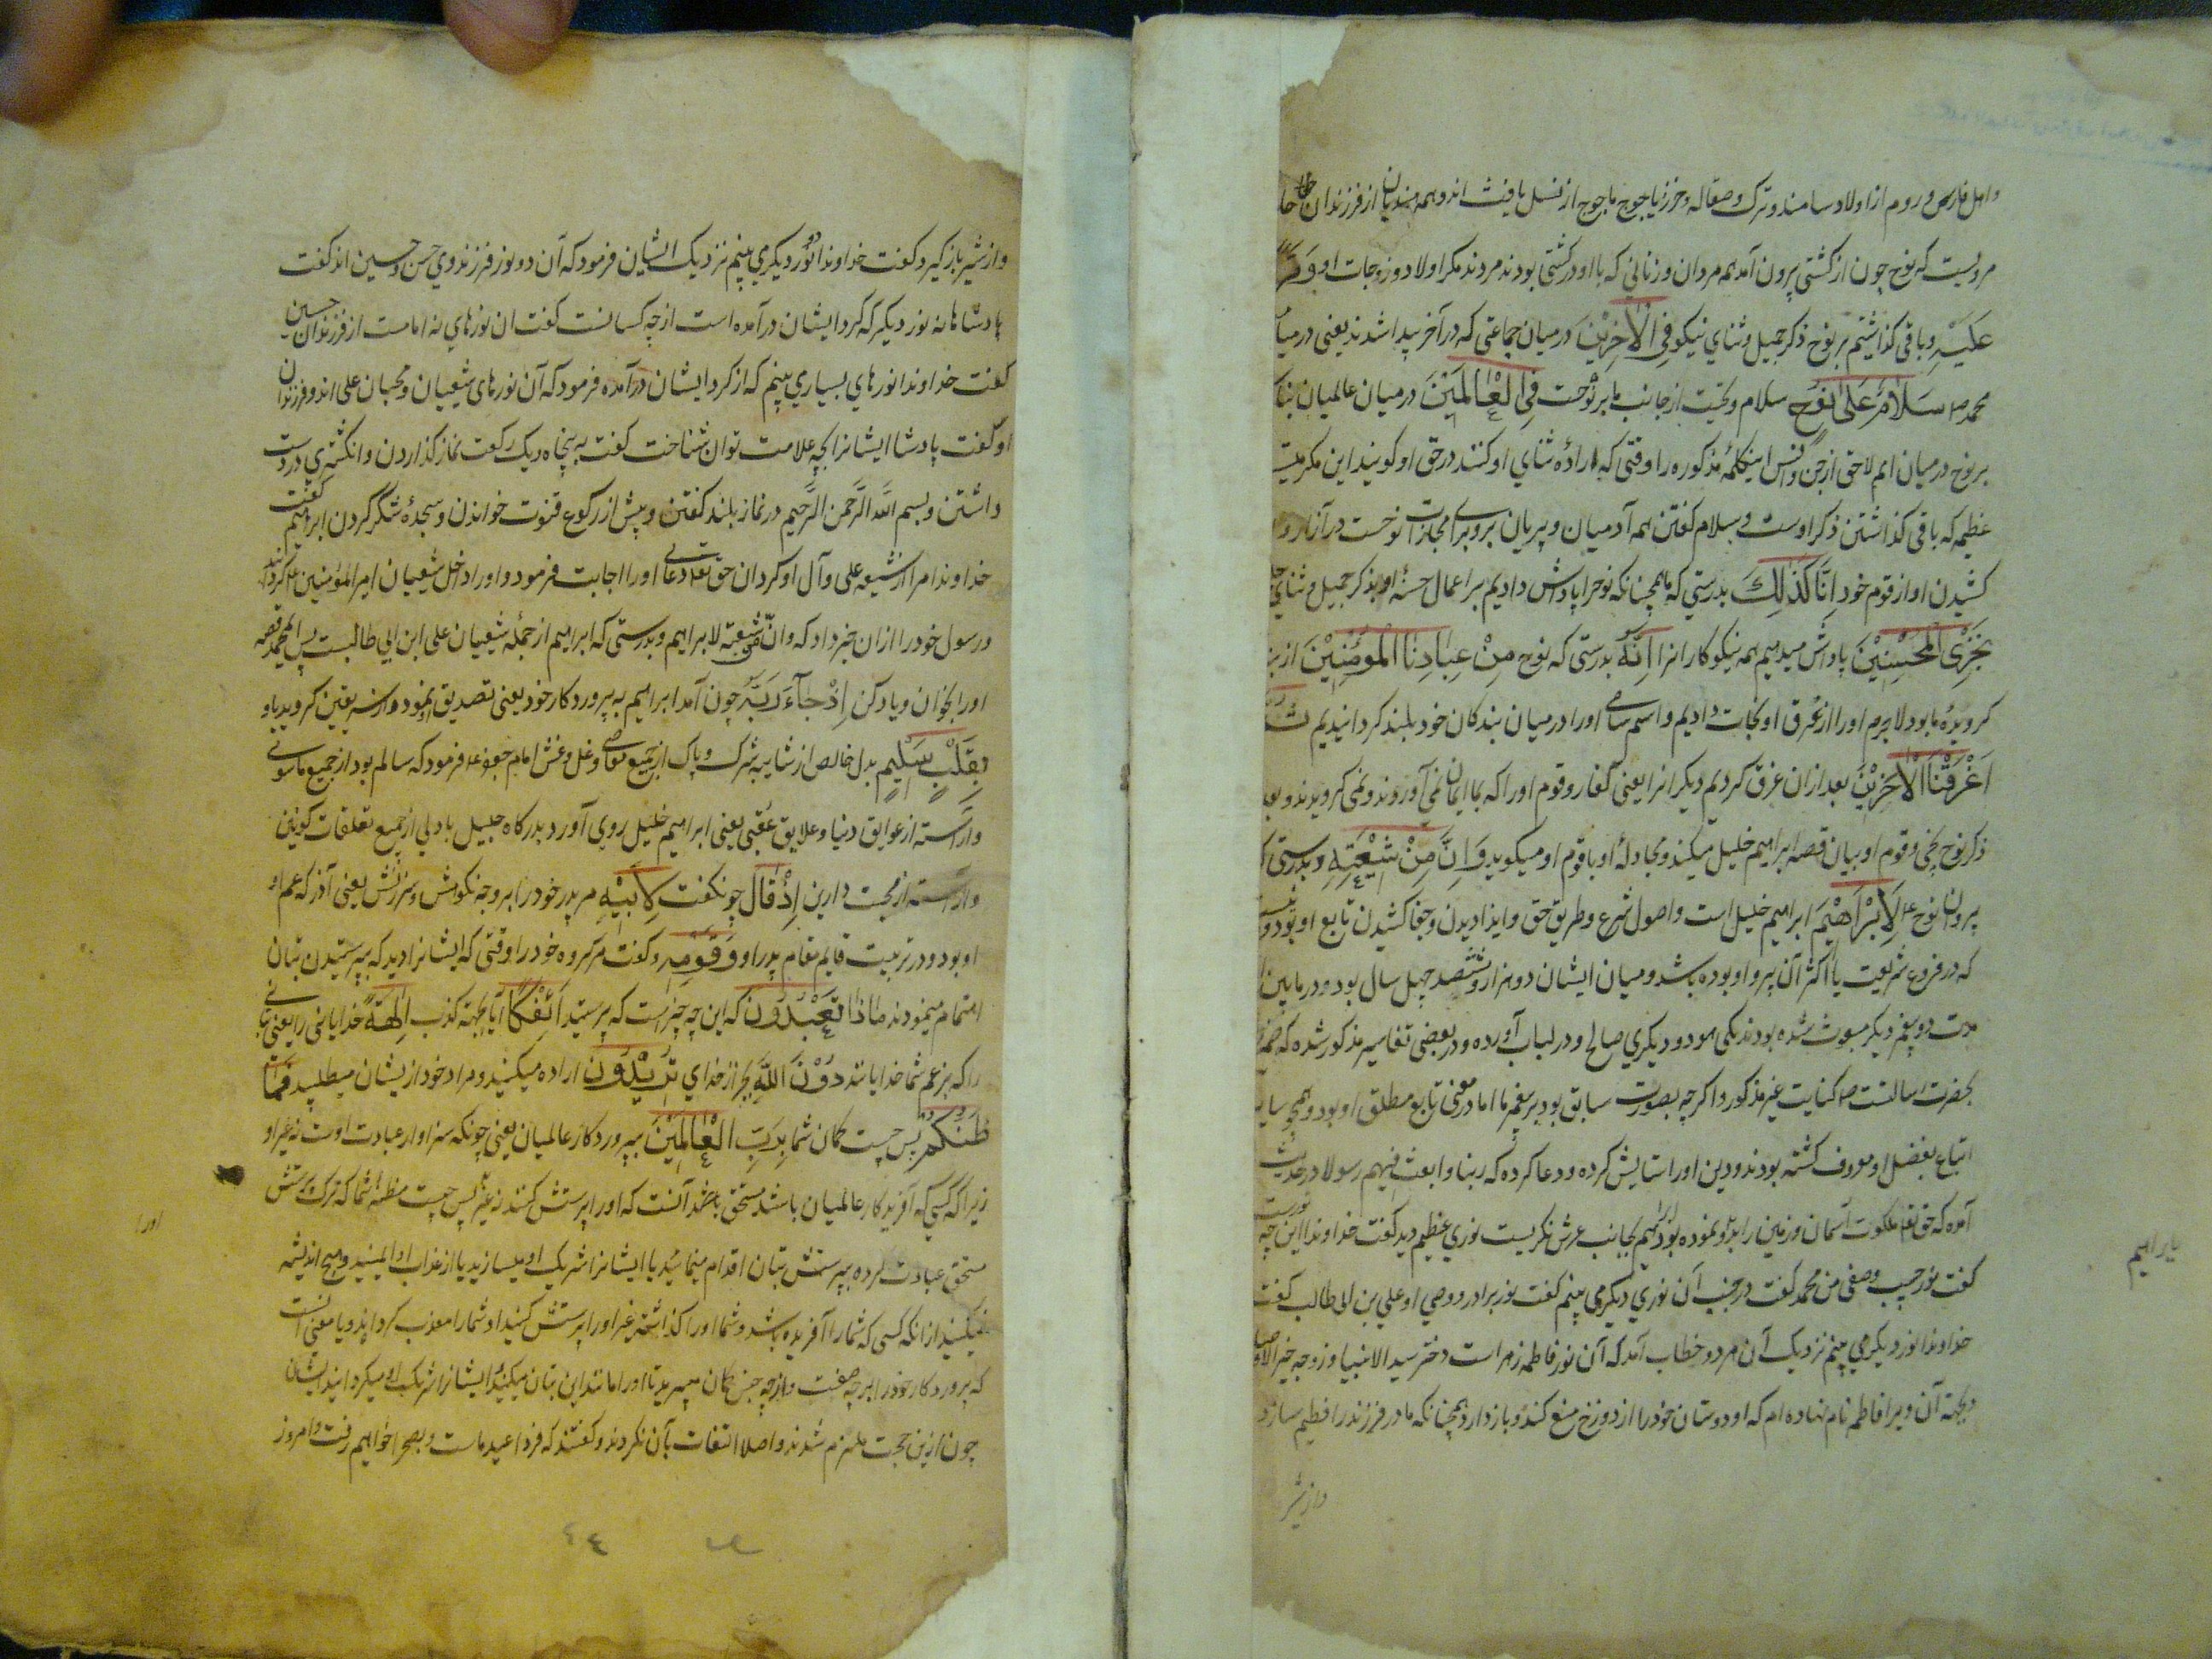 و اهل فارس و روم از اولاد سامند و ترک و صقالبه و خزر و یاجوج ماجوج از نسل یافث اند و همه هندیان از فرزندان حام
مرویست که نوح چون از کشتی بیرون آمد همه مردان و زنانی که با او در کشتی بودند مردند مکر اولاد و زوجات او
عَلَیْهِ و باقی کذاشتیم بر نوح ذکر جمیل و ثنای نیکو فِی الْآخِرِیْنَ در میان جماعتی که در آخر پیدا شدند یعنی در میان
محمد ص سَلَامٌ عَلَی نُوحٍ سلام و تحیت از جانب ما بر نوحست فِی الْعَالَمِیْنَ در میان عالمیان
بر نوح در میان امم لاحق از جن و انس اینکلمهٔ مذکوره را وقتی که ارادهٔ ثنای او کنند در حق او کویند این مکرمت
عظیمه که باقی کذاشتن ذکر اوست و سلام کفتن همه آدمیان و پریان برو برای مجازات نوحست در آزار
کشیدن او از قوم خود اِنَّا کَذٰلِكَ بدرستی که ما همچنانکه نوحرا پاداش دادیم بر اعمال حسنهٔ او بذکر جمیل و ثنای
نَجْزِی الْمُحْسِنِیْنَ پاداش میدهیم همه نیکوکارانرا اِنَّهُ بدرستی که نوح مِنْ عِبَادِنَا الْمُؤْمِنِیْنَ از
کرویدهٔ ما بود لاجرم اورا از غرق او نجات دادیم و اسم سامی اورا در میان بندکان خود بلند کردانیدیم
اَغْرَقْنَا الْآخَرِیْنَ بعد ازان غرق کردیم دیکرانرا یعنی کفار و قوم اورا که بما ایمان نمی آوردند و نمی کرویدند و بعد
ذکر نوح نجی و قوم او بیان قصهٔ ابراهیم خلیل میکند و مجادلهٔ او با قوم او میکوید وَ اِنَّ مِنْ شِیْعَتِهِ و بدرستی
پیروان نوح ع لَاِبْرَاهِیْمَ ابراهیم خلیل است و اصول شرع و طریق حق و ایذا دیدن و جفا کشیدن تابع او بود
که در فروع شریعت یا اکثر آن پیرو او بوده باشد و میان ایشان دو هزار و ششصد چهل سال بود و درمابین
مدت دو پیغمبر دیکر مبعوث شده بودند یکی هود و دیکری صالح و در لباب آورده و در بعضی تفاسیر مذکور شده که
بحضرت رسالتست ص کنایت غیر مذکور و اکرچه بصورت سابق بود بر پیغمبر ما اما در معنی تابع مطلق او بود
اتباع بفضل او معروف کشته بودند و دین اورا ستایش کرده و دعا کرده که ربنا وابعث فیهم رسولا در حدیث
آمده که حق تعالی ملکوت آسمان و زمین را بدو نموده بود ابراهیم بجانب عرش نکریست نوری عظیم دید کفت خداوندا این چه نورست
کفت نور حبیب و صفی من محمد کفت در جنب آن نوری دیکر می بینم کفت نور برادر و وصی او علی بن ابی طالب کفت
خداوندا نور دیکر می بینم نزدیک آن هر دو خطاب آمد که آن نور فاطمه زهراست دختر سید الانبیا و زوجه خیر الاوصیا
و بجهة آن ویرا فاطمه نام نهاده ام که او دوستان خودرا از دوزخ منع کند و باز دارد همچنانکه مادر فرزند را فطیم سازد
و از شیر
یا براهیم
و از شیر باز کیرد کفت خداوندا دو نور دیکری بینم نزدیک ایشان فرمود که آن دو نور فرزند وی حسن و حسین اند کفت
پادشاها نه نور دیکر که کرد ایشان درآمده است از چه کسانست کفت ان نورهای نه امامست از فرزندان حسین
کفت خداوندا نورهای بسیاری بینم که از کرد ایشان درآمده فرمود که آن نورهای شیعیان و محبان علی اند و فرزندان
او کفت پادشاها ایشانرا بچه علامت توان شناخت کفت به پنجاه و یک رکعت نماز کذاردن و انکشتری در دست
داشتن و بسم الله الرَّحمن الرَّحیم در نماز بلند کفتن و پیش از رکوع قنوت خواندن و سجدهٔ شکر کردن ابراهیم کفت
خداوندا مرا از شیعه علی و آل او کردان حق تعالی دعای اورا اجابت فرمود و اورا داخل شیعیان امیر المؤمنین ع کردانید
و رسول خودرا ازان خبر داد که وانّ من شیعته لابراهیم و بدرستی که ابراهیم از جملهٔ شیعیان علی ابن ابی طالبست پس ای محمد قصه
اورا بخوان و یاد کن اِذْ جَآءَ رَبَّهُ چون آمد ابراهیم به پروردکار خود یعنی تصدیق نمود و از سر یقین کروید باو
بِقَلْبٍ سَلِیْمٍ بدل خالص از شایبه شرک و پاک از جمیع معاصی و غل و غش امام جعفر ع فرمود که سالم بود از جمیع ماسوی
وارسته از عوایق دنیا و علایق عقبی یعنی ابراهیم خلیل روی آورد بدرکاه جلیل بادلی از جمیع تعلقات کونین
وارسته از محبت دارین اِذْ قَالَ چون کفت لِاَبِیْهِ مر پدر خودرا بر وجه نکوهش و سرزنش یعنی آذر که عم او
او بود و در تربیت قایم مقام پدر او وَقَوْمِهِ و کفت مر کروه خودرا وقتی که ایشانرا دید که بپرستیدن بتان
اهتمام مینمودند مَاذَا تَعْبُدُوْنَ که این چه چیز است که پرستید اَئِفْکًا آیا بجهة کذب اٰلِهَةً خدایانی را یعنی
را که بزعم شما خدایانند دُوْنَ اللهِ بجز از خدای تُرِیْدُوْنَ اراده میکنید و مراد خود ازیشان میطلبید فَمَا
ظَنُّکُمْ پس چیست کمان شما بِرَبِّ الْعَالَمِیْنَ بپروردکار عالمیان یعنی چونکه سزاوار عبادت اوست نه غیر او
زیرا که کسی که آفریدکار عالمیان باشد مستحق آنست که اورا پرستش کنند نه غیر پس چیست مظنهٔ شما که ترک پرستش
مستحق عبادت کرده بپرستش بتان اقدام مینمائید یا ایشانرا شریک او میسازید یا از عذاب او ایمنید و هیچ اندیشه
نمیکنید ازانکه کسی که شمارا آفریده باشد و شما اورا کذاشته غیر اورا پرستش کنید او شمارا معذب کرداند و یا معنی آنست
که پروردکار خودرا بر چه صفت و از چه جنس کمان میبرید تا اورا مانند این بتان میکنید و ایشانرا شریک او میکردانید ایشان
چون ازین حجت ملزم شدند و اصلا التفات بآن نکردند و کفتند که فردا عید ماست و بصحرا خواهیم رفت و امروز
اورا
٤٤